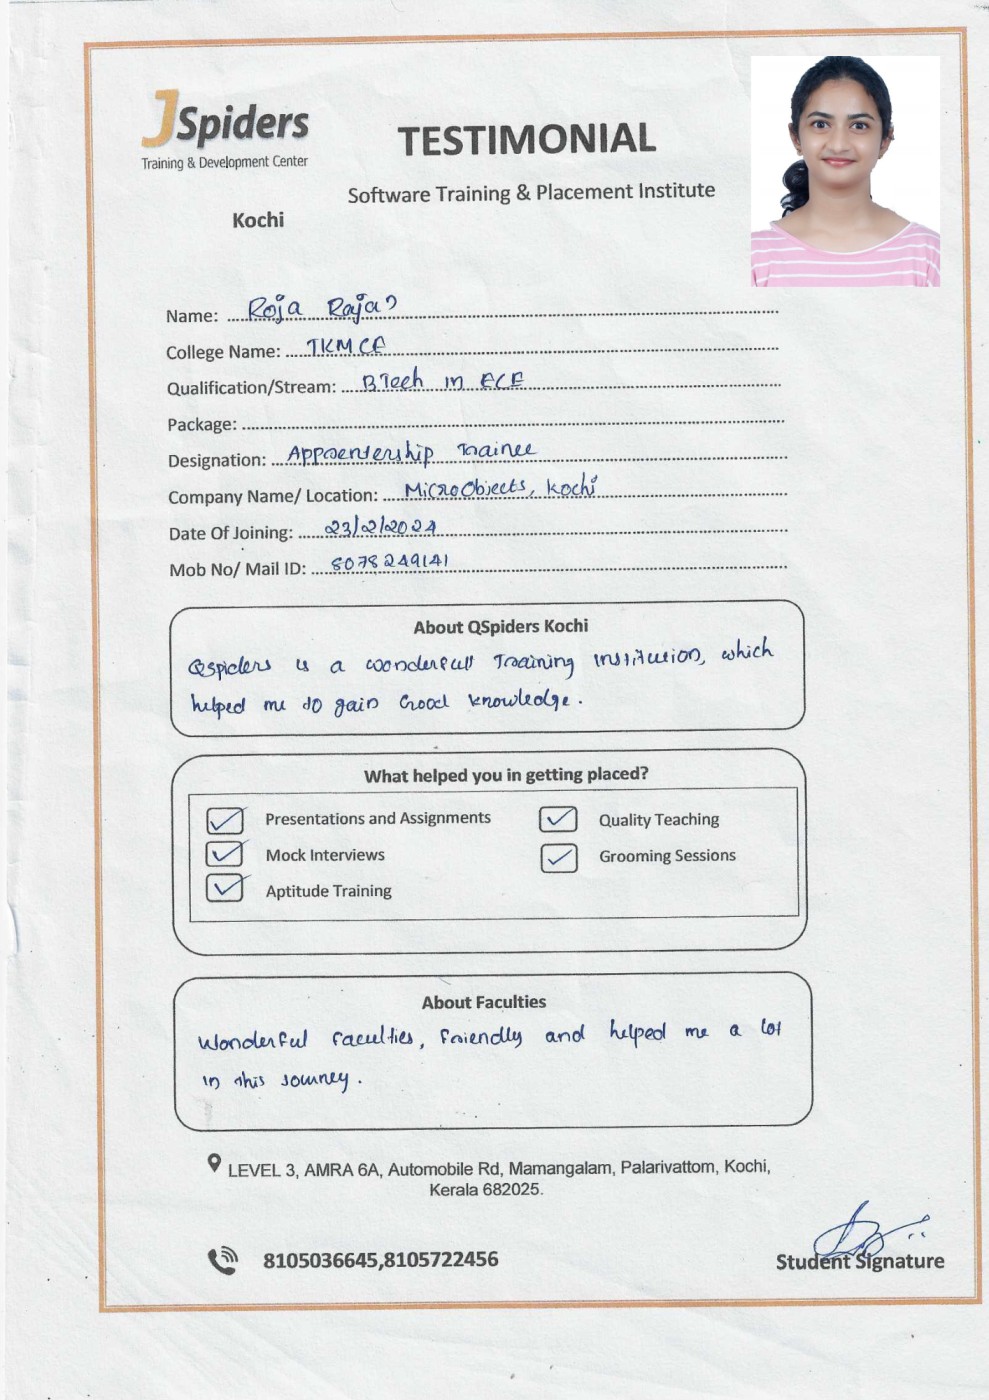 JSpiders
Training & Development Center
Kochi
TESTIMONIAL
Software Training & Placement Institute
Name: Roja Rajan
College Name: TKMCE
Qualification/Stream: BTech in ECE
Package:
Designation: Apprentership Trainee
Company Name/ Location: MicroObjects, Kochi
Date Of Joining: 23/2/2024
Mob No/ Mail ID: 8078249141
About QSpiders Kochi
Qspiders is a wonderfull Training institution, which
helped me to gain Good knowledge.
What helped you in getting placed?
Presentations and Assignments Quality Teaching
Mock Interviews Grooming Sessions
Aptitude Training
About Faculties
Wonderful faculties, friendly and helped me a lot
in this journey.
LEVEL 3, AMRA 6A, Automobile Rd, Mamangalam, Palarivattom, Kochi,
Kerala 682025.
8105036645,8105722456
Student Signature